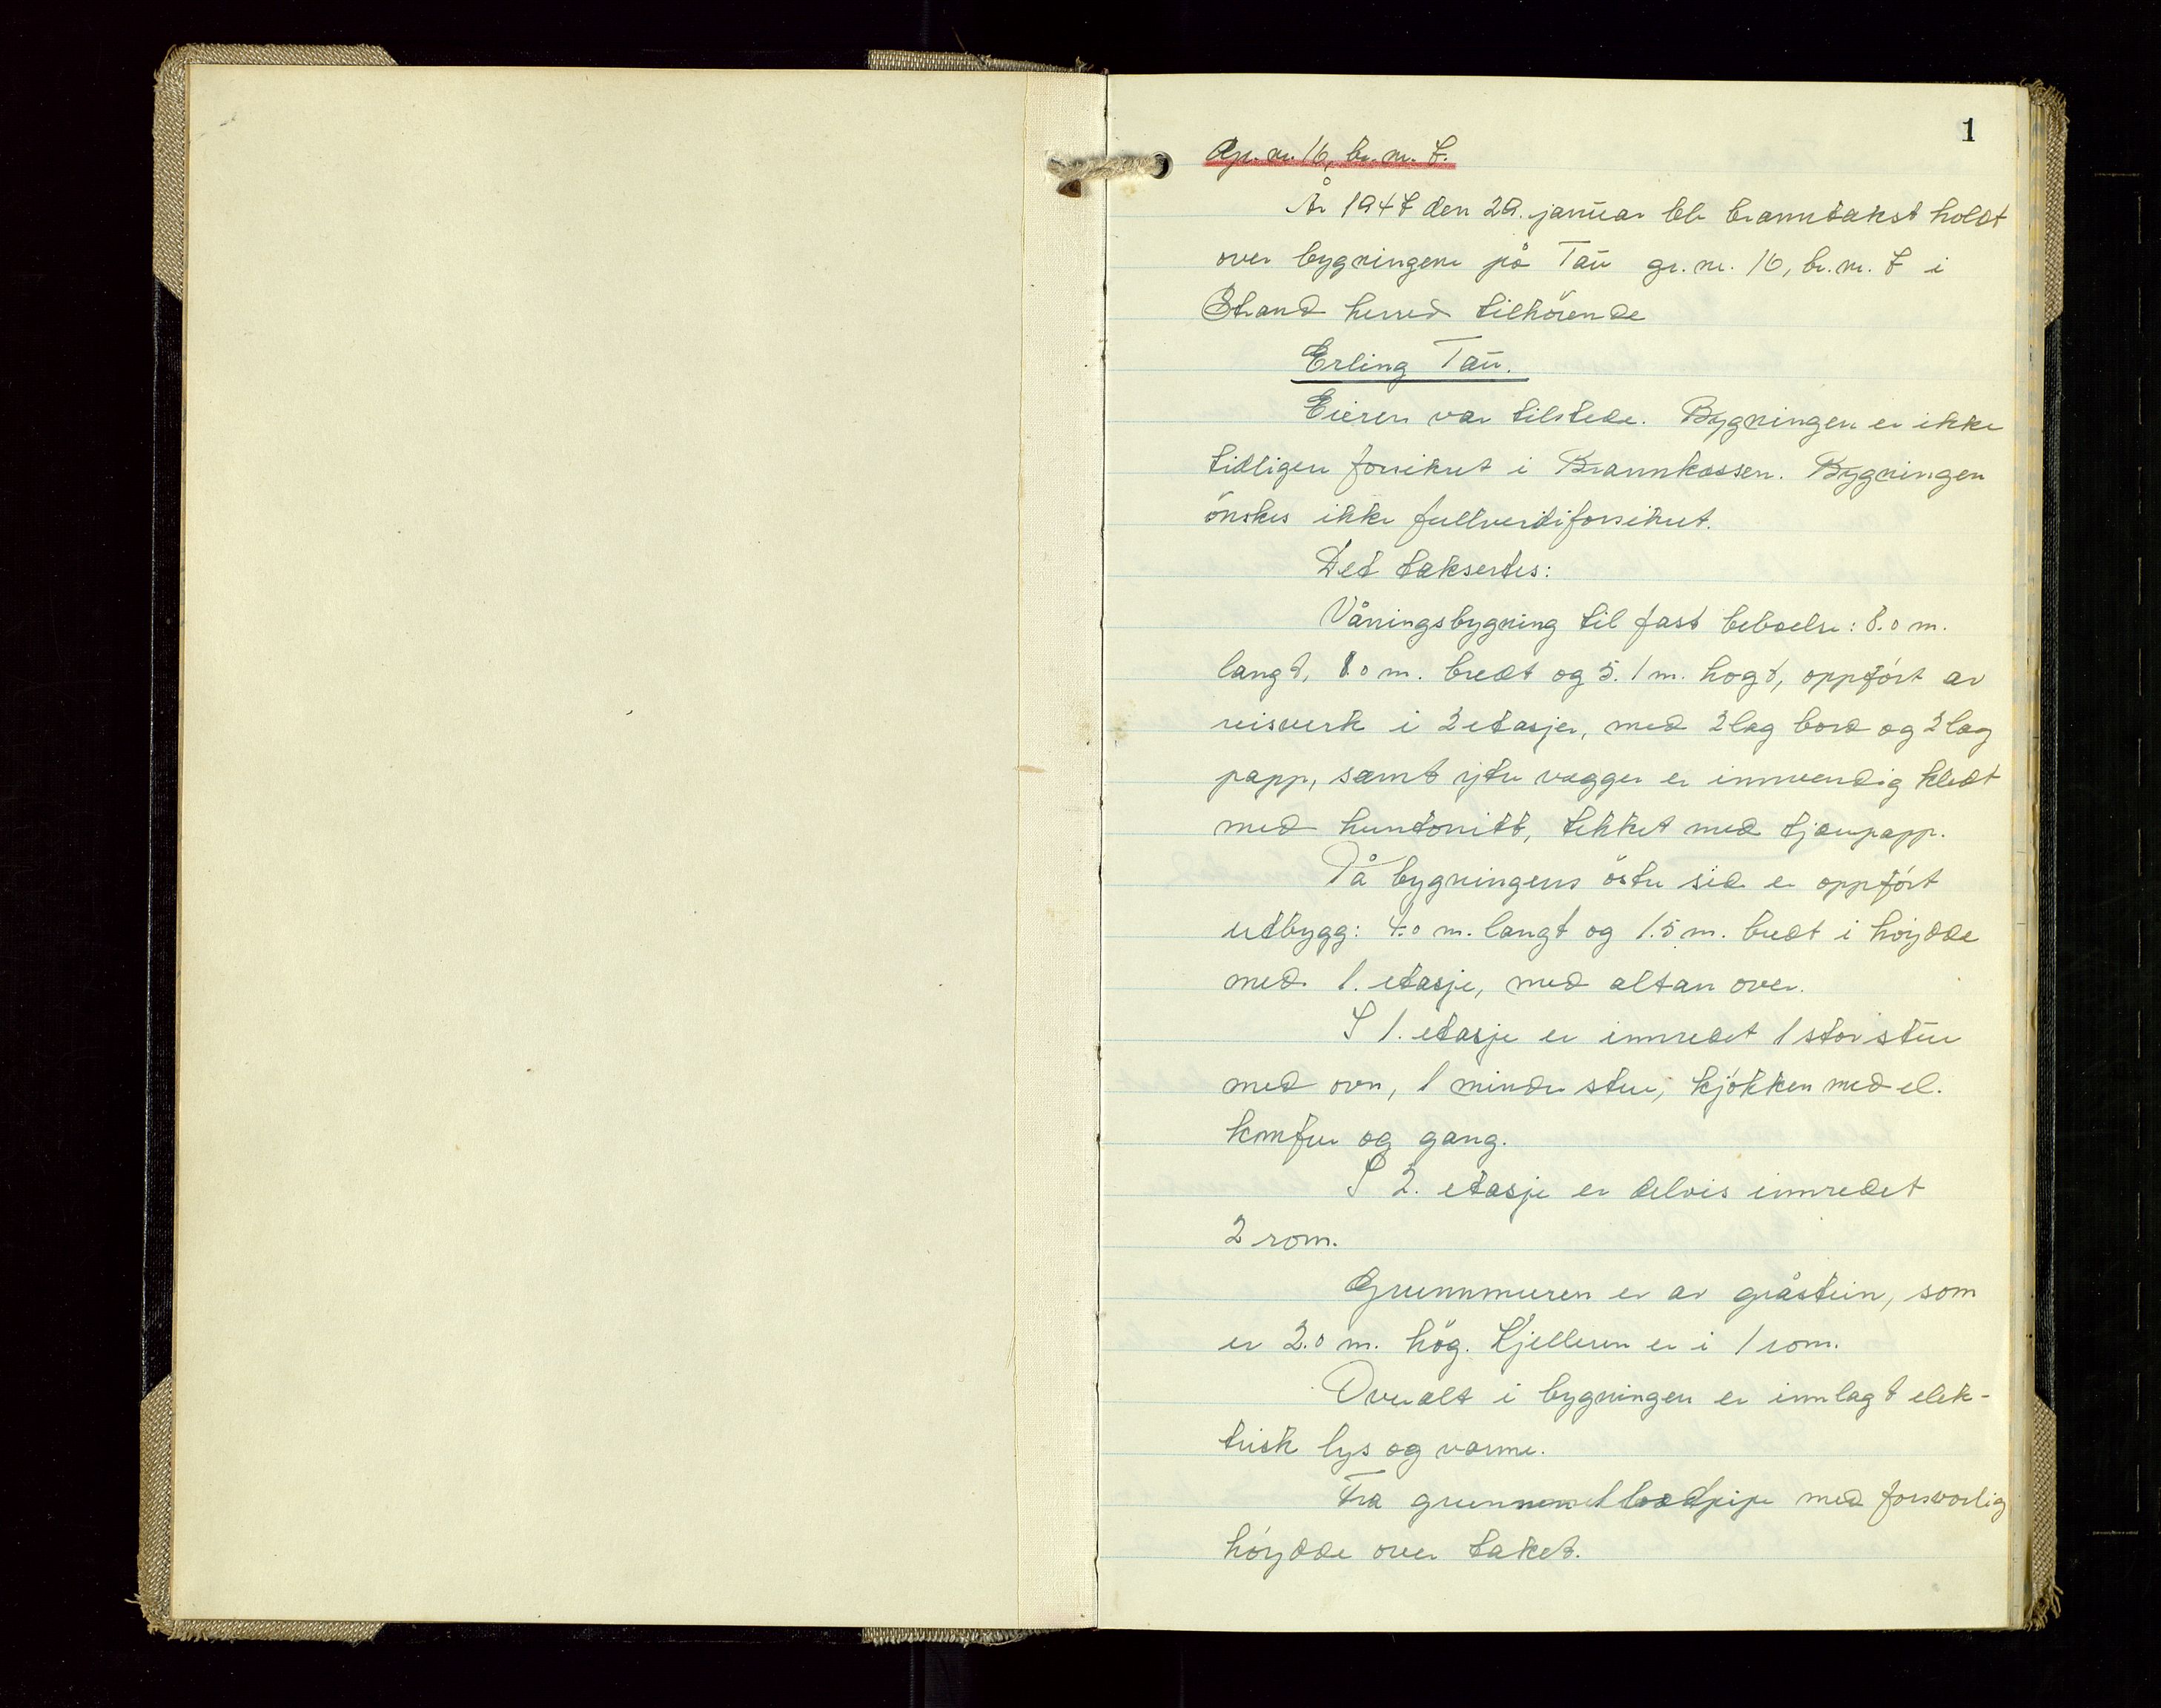 1
Gr. nr. 16, br. nr. 7.
År 1947 den 29. januar ble branntakst holdt
over bygningene på Tau gr. nr. 16, br. nr. 7 i
Strand herred tilhörende
Erling Tau.
Eieren var tilstede. Bygningen er ikke
tidligere forsikret i Brannkassen. Bygningen
önskes ikke fullverdiforsikret.
Det taksertes:
Våningsbygning til fast beboelse: 8.0 m.
langt, 8.0 m. bredt og 5.1 m. hogt, oppfört av
reisverk i 2 etasjer, med 2 lag bord og 2 lag
papp, samt ytre vegger er innvendig kledt
med huntonitt, tekket med tjærepapp.
På bygningens östre side er oppfört
utbygg: 4.0 m. langt og 1.5 m. bredt i höydde
med 1. etasje, med altan over.
I 1. etasje er innredet 1 stor stue
med ovn, 1 mindre stue, kjökken med el.
komfur og gang.
I 2. etasje er delvis innredet
2 rom.
Grunnmuren er av gråstein, som
er 2.0 m. hög. Kjelleren er i 1 rom.
Overalt i bygningen er innlagt elek-
trisk lys og varme.
Fra grunnen med forsvarlig
höydde over taket.